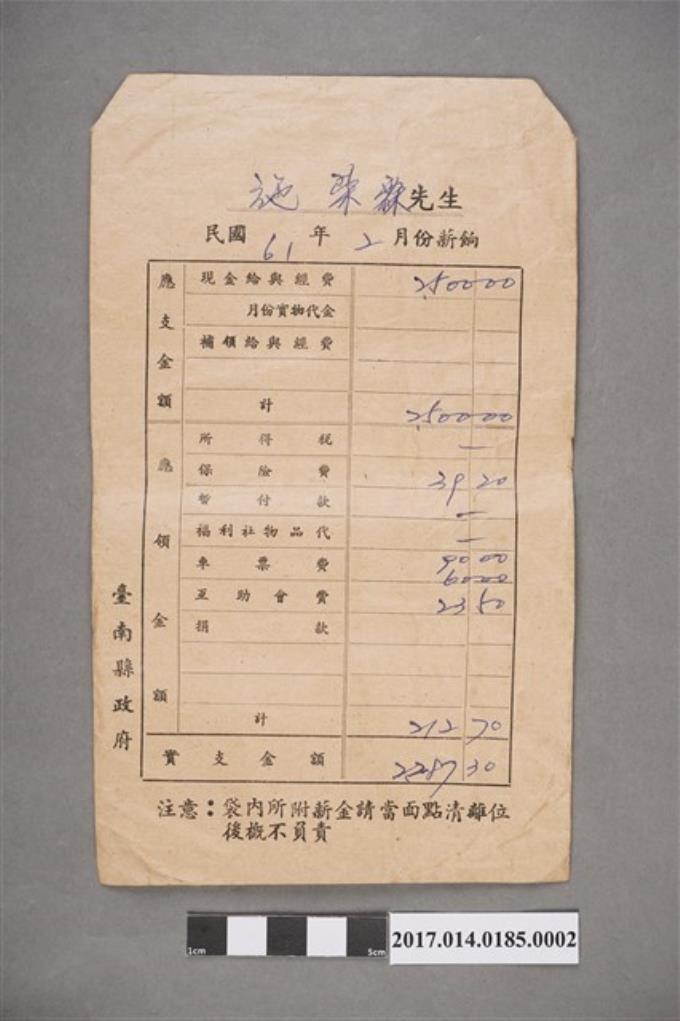 施 榮森先生
民國 61 年 2 月份薪餉
應支金額
現金給與經費 2500 00
月份實物代金
補領給與經費
計 2500 00
應領金額
所得稅 —
保險費 39 20
暫付款 —
福利社物品代 —
車票費 90 00
60 00
互助會費 23 50
捐款
計 212 70
實支金額 2287 30
臺南縣政府
注意：袋內所附薪金請當面點清離位
後概不負責
1cm 5cm
2017.014.0185.0002